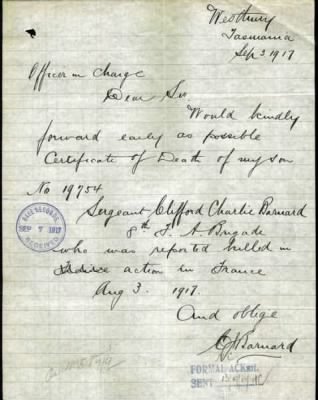 Westbury
Tasmania
Sep 3 1917
Officer in Charge
Dear Sir
Would kindly
forward early as possible
Certificate of Death of my son
No 19754
Sergeant Clifford Charlie Barnard
8th F. A. Brigade
who was reported killed in
action in France
Aug 3. 1917.
And oblige
Barnard
BASE RECORDS
SEP 7 1917
RECEIVED
FORMAL ACKMT.
SENT